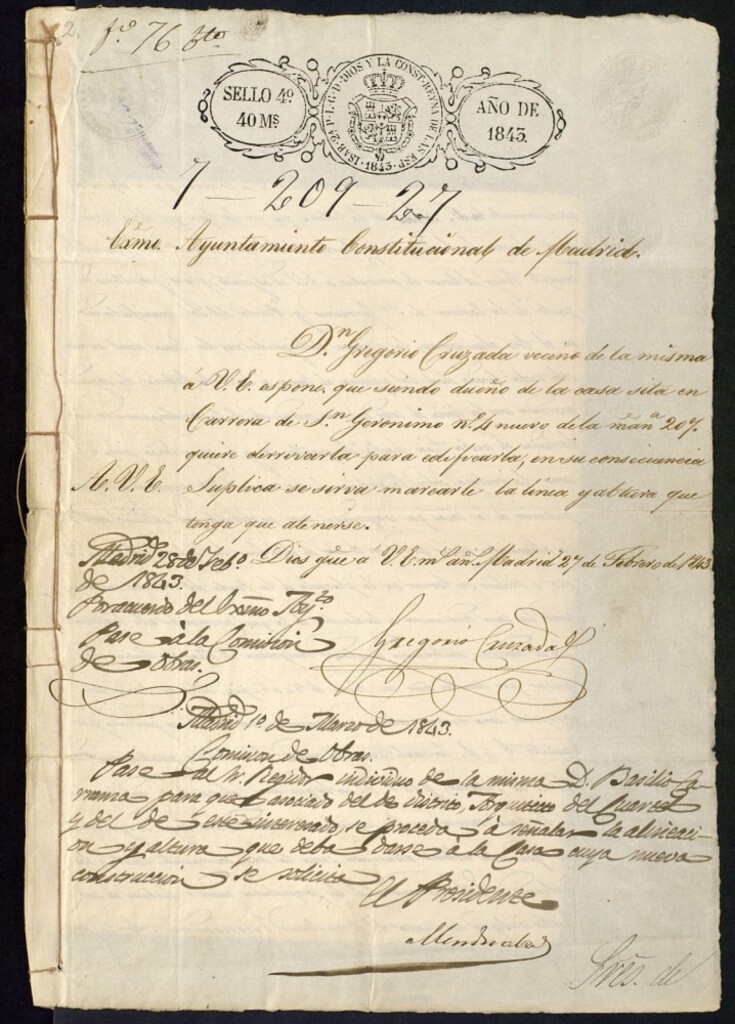 fº 76 vto
SELLO 4º
40 Ms
ISAB. 2ª P. L. G. D. DIOS Y LA CONST. REYNA DE LAS ESP.
1843
AÑO DE
1843.
7 — 209 — 27
Exmo. Ayuntamiento Constitucional de Madrid.
Dn Gregorio Cruzada vecino de la misma
á V. E. espone, que siendo dueño de la casa sita en
Carrera de Sn Geronimo nº 4 nuevo de la manª 207.
quiere derrivarla para edificarla, en su consecuencia
A. V. E. Suplica se sirva marcarle la linea y altura que
tenga que atenerse.
Dios gue á V. E. ms añs. Madrid 27 de Febrero de 1843
Madrid 28 de Febº
de 1843.
Por acuerdo del Exsmo Ayto
Pase à la Comision
de Obras.
Gregorio Cruzada
Madrid 1º de Marzo de 1843.
Comision de Obras.
Pase al Sr. Regidor individuo de la misma D. Basilio
para que asociado del de distrito, Arquitecto del Cuartel
y del de este interesado, se proceda à señalar la alineaci-
on y altura que deba darse à la Casa cuya nueva
construccion se solicita
El Presidente
Sres. de